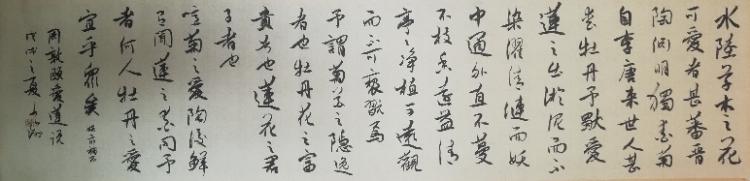 水陸草木之花
可愛者甚蕃晋
陶渊明獨愛菊
自李唐来世人甚
爱牡丹予獨愛
蓮之出淤泥而不
染濯清漣而妖
中通外直不蔓
不枝香遠益清
亭亭净植可遠觀
而不可褻翫焉
予謂菊花之隐逸
者也牡丹花之富
貴者也蓮花之君
子者也
噫菊之愛陶後鮮
有聞蓮之愛同予
者何人牡丹之愛
宜乎衆矣
周敦頤爱蓮説
戊戌之夏